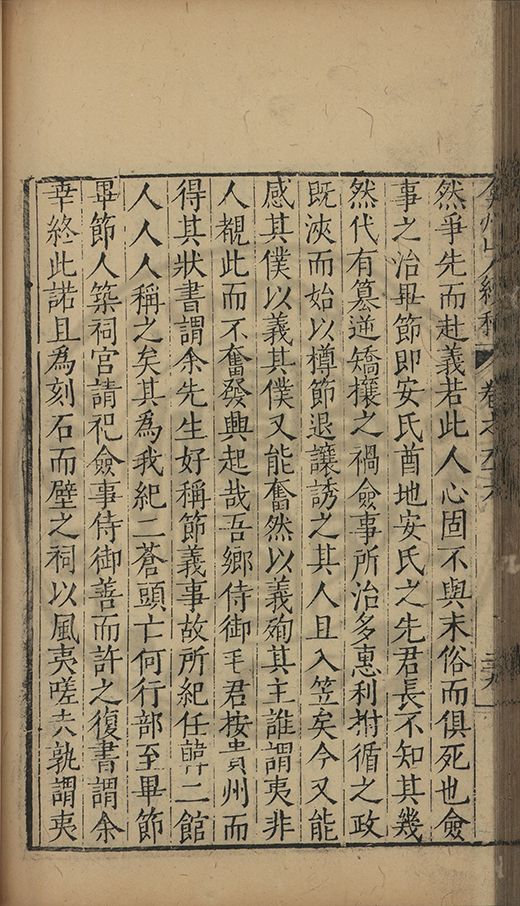 弇州山人續稿 卷之五六
然爭先而赴義若此人心固不與末俗而俱死也僉
事之治畢節即安氏酋地安氏之先君長不知其幾
然代有篡逆矯攘之禍僉事所治多惠利拊循之政
既浹而始以樽節退讓誘之其人且入笠矣今又能
感其僕以義其僕又能奮然以義殉其主誰謂夷非
人覩此而不奮發興起哉吾鄉侍御毛君按貴州而
得其狀書謂余先生好稱節義事故所紀任韓二館
人人人稱之矣其為我紀二蒼頭亡何行部至畢節
畢節人築祠宮請祀僉事侍御善而許之復書謂余
幸終此諾且為刻石而壁之祠以風夷嗟夫孰謂夷